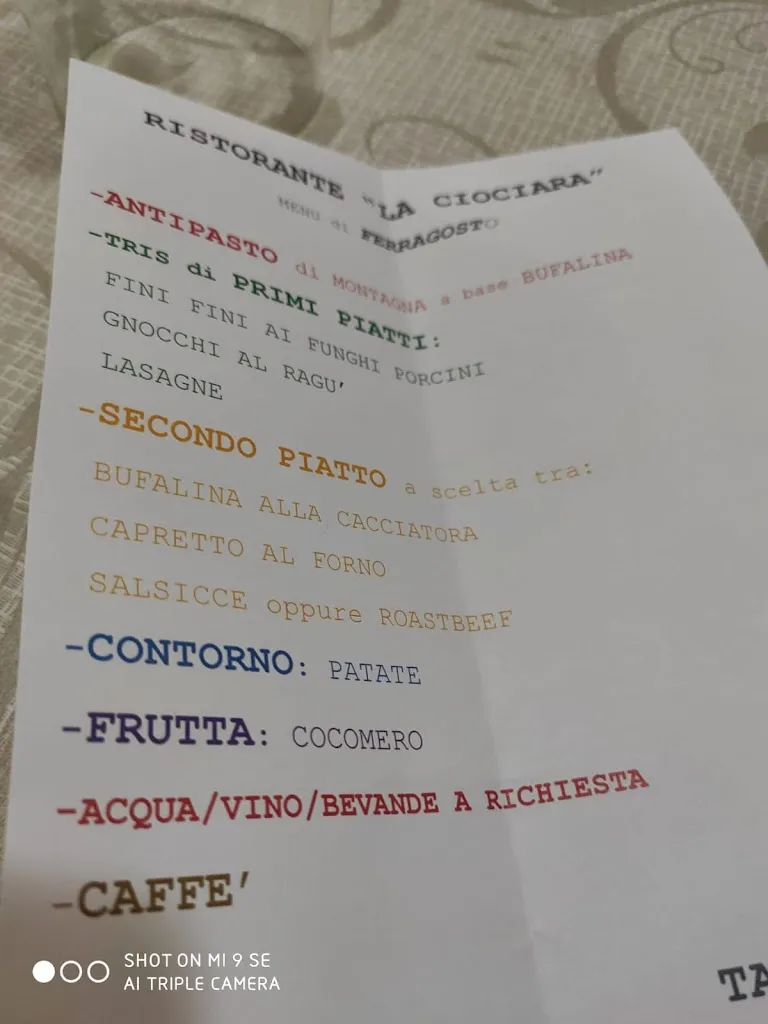 RISTORANTE "LA CIOCIARA"
MENU di FERRAGOSTO
-ANTIPASTO di MONTAGNA a base BUFALINA
-TRIS di PRIMI PIATTI:
FINI FINI AI FUNGHI PORCINI
GNOCCHI AL RAGU'
LASAGNE
-SECONDO PIATTO a scelta tra:
BUFALINA ALLA CACCIATORA
CAPRETTO AL FORNO
SALSICCE oppure ROASTBEEF
-CONTORNO: PATATE
-FRUTTA: COCOMERO
-ACQUA/VINO/BEVANDE A RICHIESTA
-CAFFE'
SHOT ON MI 9 SE
AI TRIPLE CAMERA